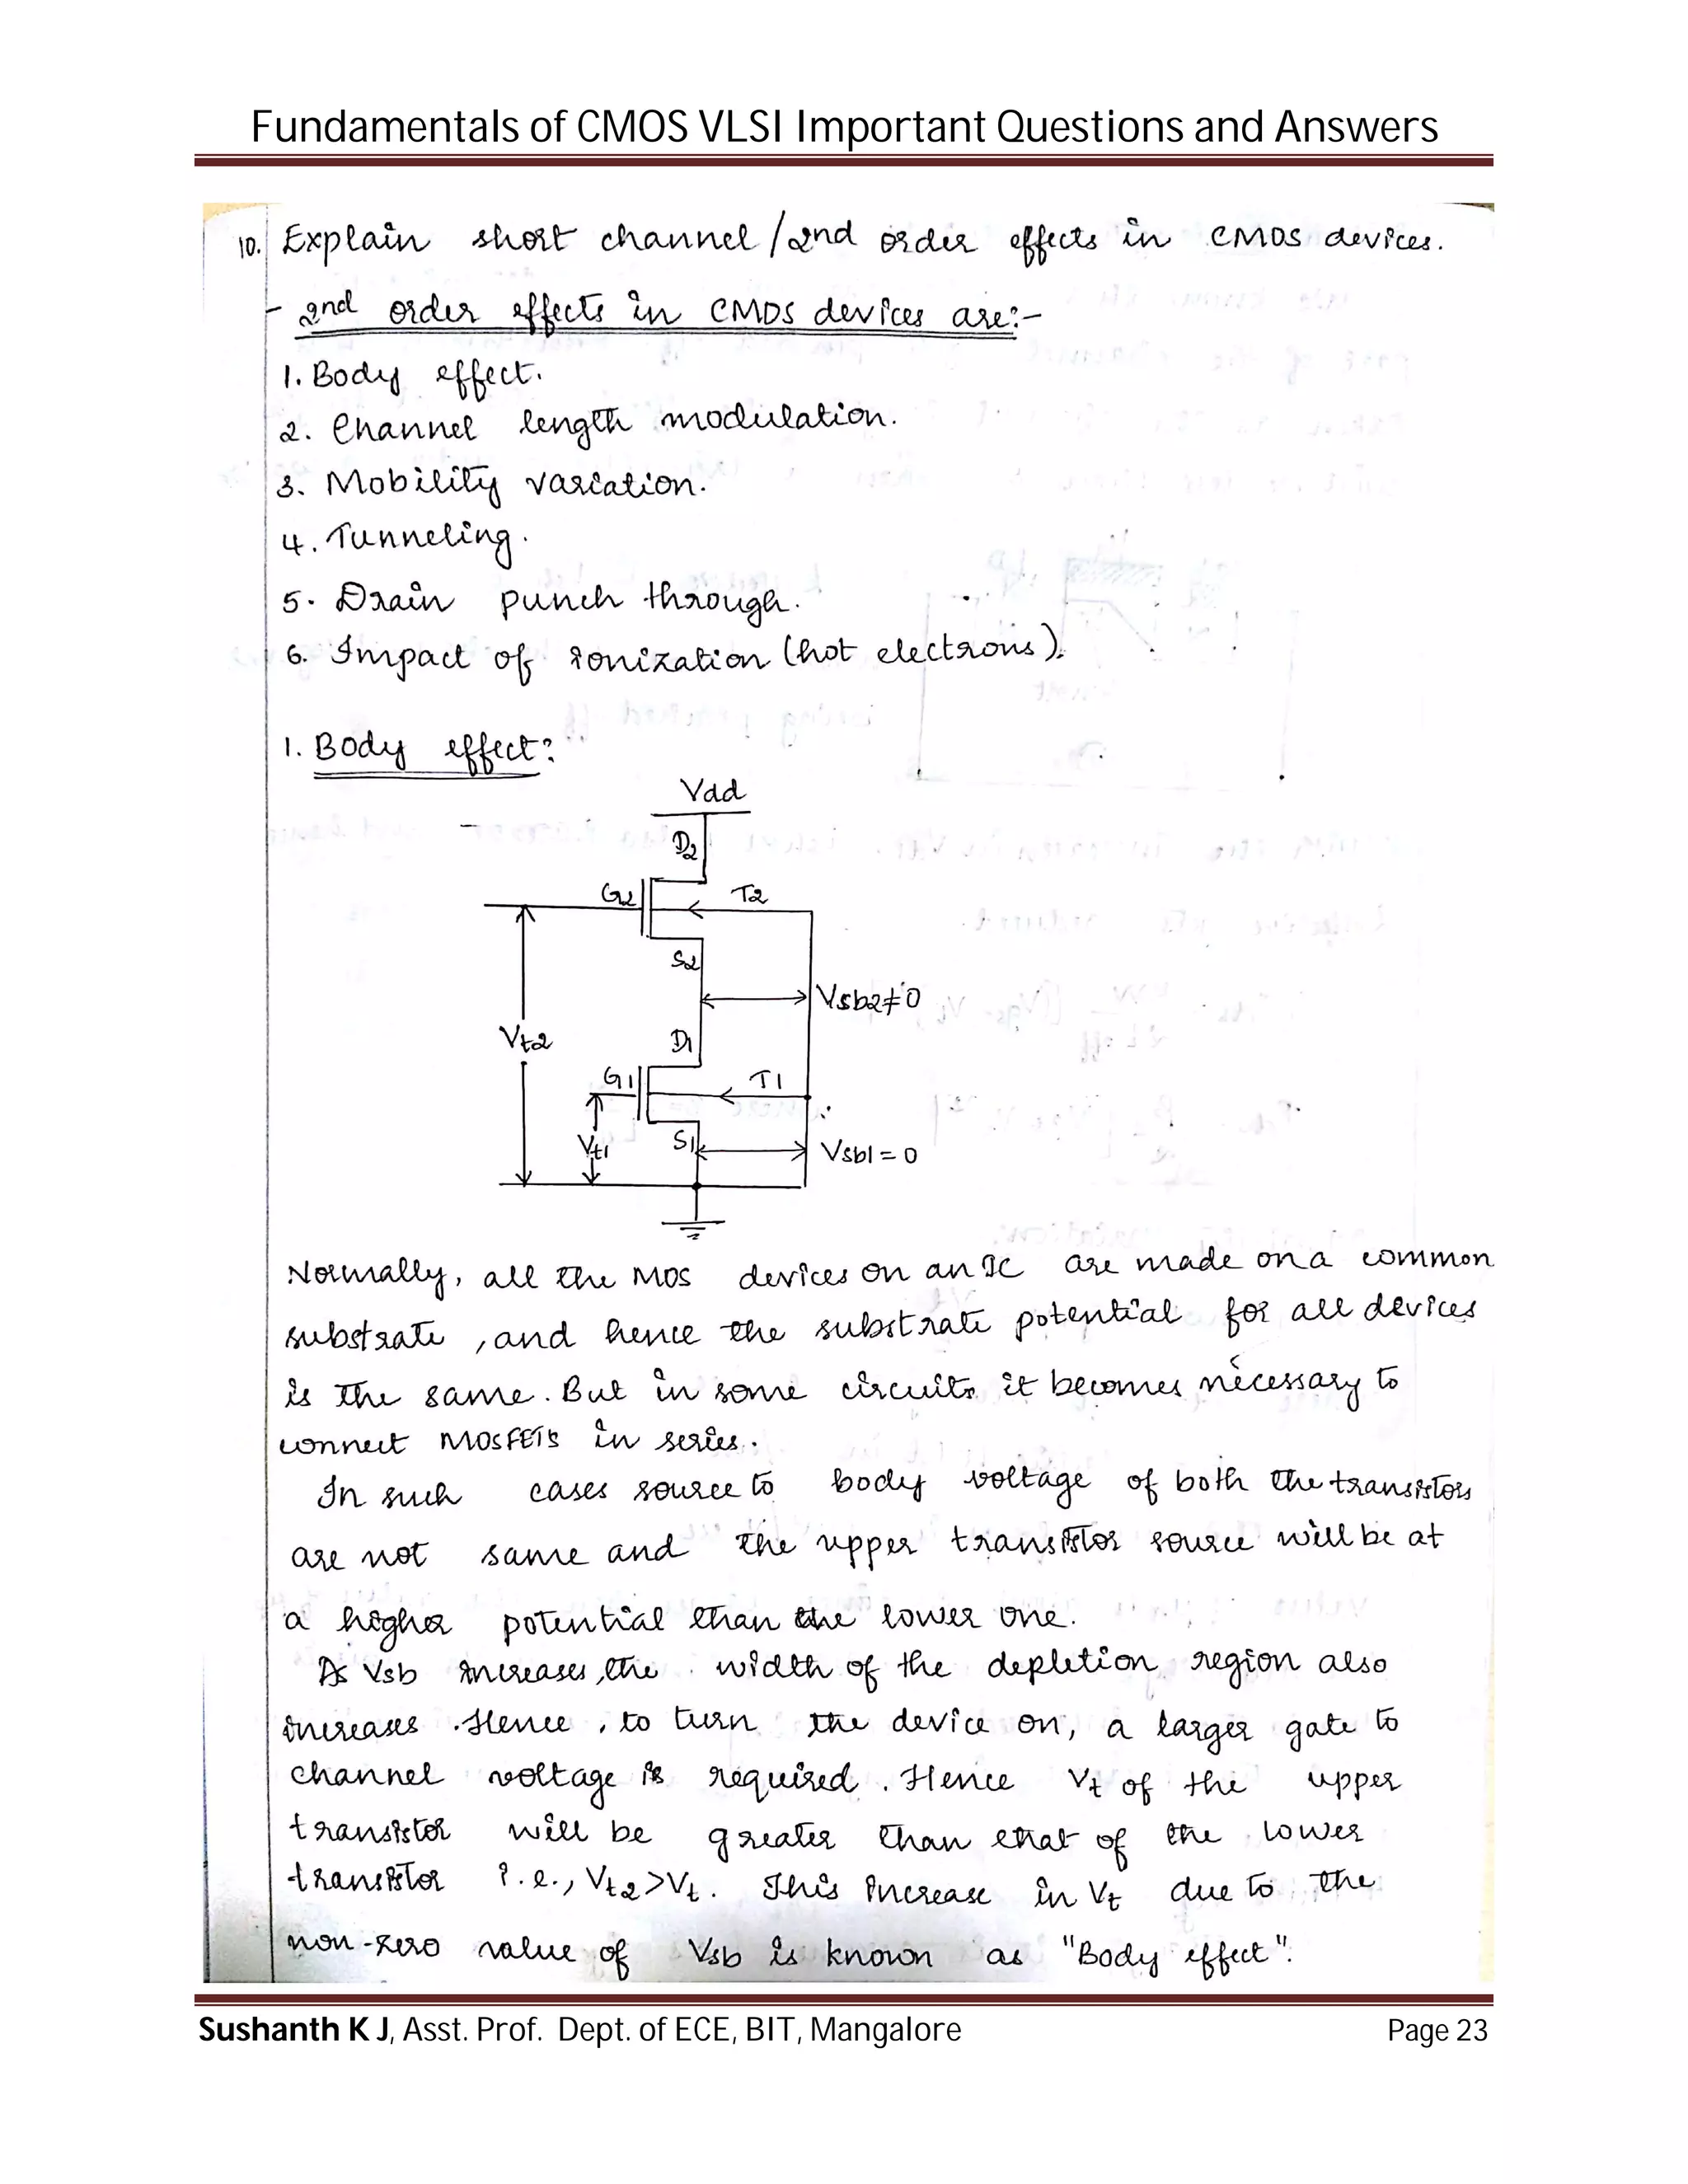 Fundamentals of CMOS VLSI Important Questions and Answers
10. Explain short channel/2nd order effects in CMOS devices.
- 2nd order effects in CMOS devices are:-
1. Body effect.
2. Channel length modulation.
3. Mobility variation.
4. Tunneling.
5. Drain punch through.
6. Impact of ionization (hot electrons).
1. Body effect:
Vdd
D2
G2 T2
S2
Vsb2≠0
Vt2
D1
G1 T1
Vt1
S1
Vsb1 = 0
Normally, all the MOS devices on an IC are made on a common
substrate, and hence the substrate potential for all devices
is the same. But in some circuits it becomes necessary to
connect MOSFETs in series.
In such cases source to body voltage of both the transistors
are not same and the upper transistor source will be at
a higher potential than the lower one.
As Vsb increases, the width of the depletion region also
increases. Hence, to turn the device on, a larger gate to
channel voltage is required. Hence Vt of the upper
transistor will be greater than that of the lower
transistor i.e., Vt2>Vt. This increase in Vt due to the
non-zero value of Vsb is known as "Body effect".
Sushanth K J, Asst. Prof. Dept. of ECE, BIT, Mangalore Page 23